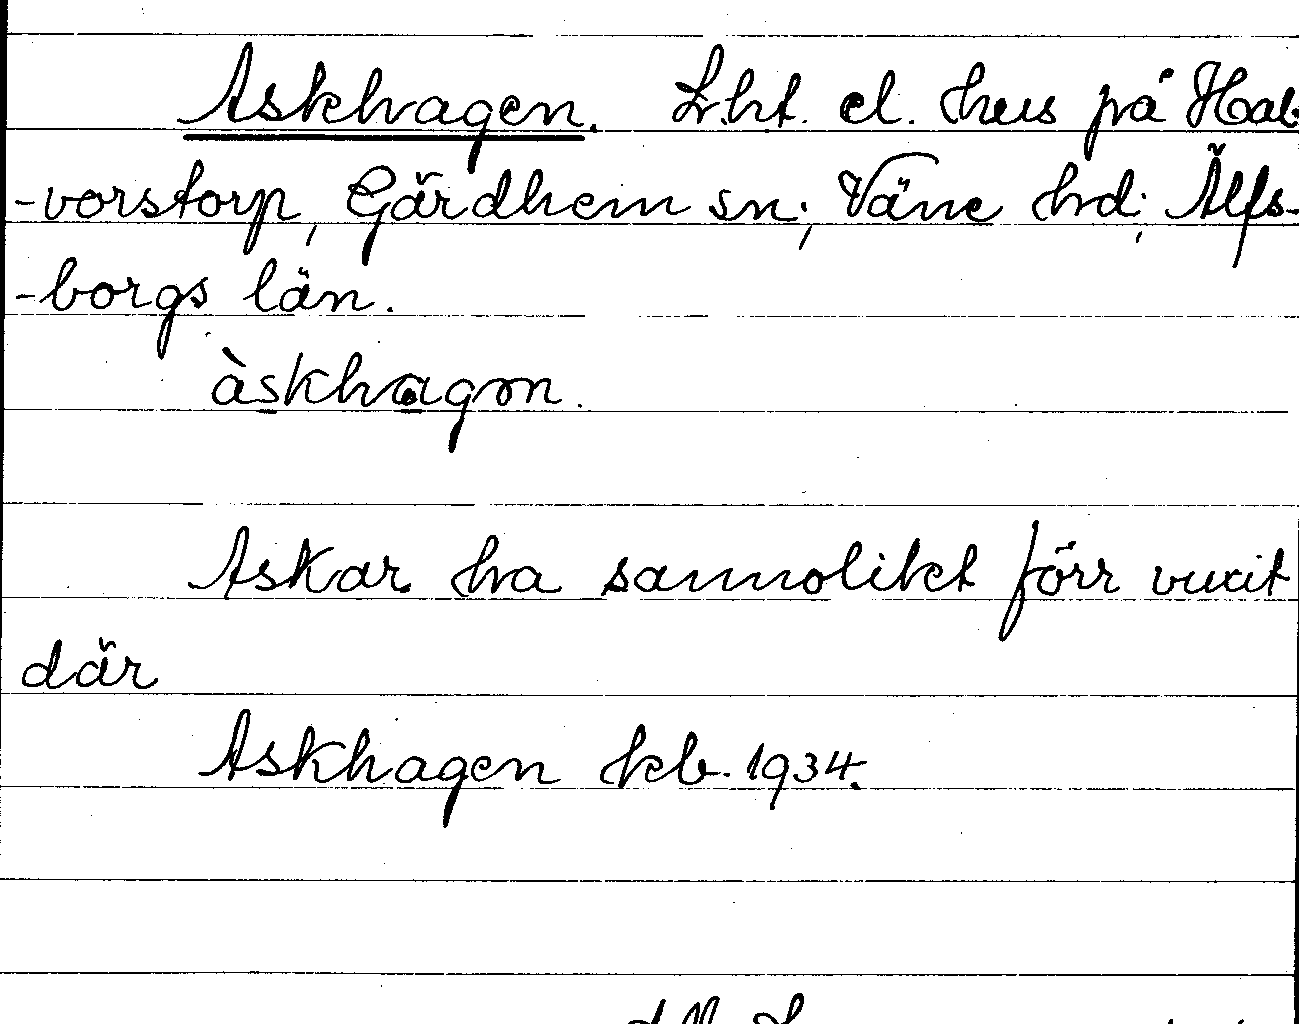 Askhagen. Lht. el. hus på Hal-
-vorstorp, Gärdhem sn; Väne hd; Älfs-
-borgs län.
àskhagən.
Askar ha sannolikt förr vuxit
där
Askhagen kb. 1934.